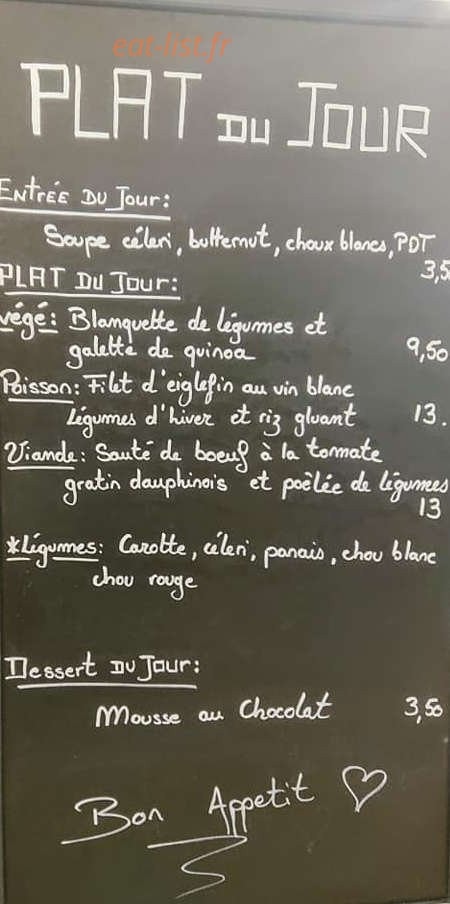 eat-list.fr
PLAT DU JOUR
ENTRÉE DU JOUR:
Soupe céleri, butternut, choux blancs, PDT
3,5
PLAT DU JOUR:
végé: Blanquette de légumes et
galette de quinoa 9,50
Poisson: Filet d'eiglefin au vin blanc
Légumes d'hiver et riz gluant 13.
Viande: Sauté de boeuf à la tomate
gratin dauphinois et poêlée de légumes
13
*Légumes: Carotte, céleri, panais, chou blanc
chou rouge
Dessert DU JOUR:
Mousse au Chocolat 3,50
Bon Appetit ♡